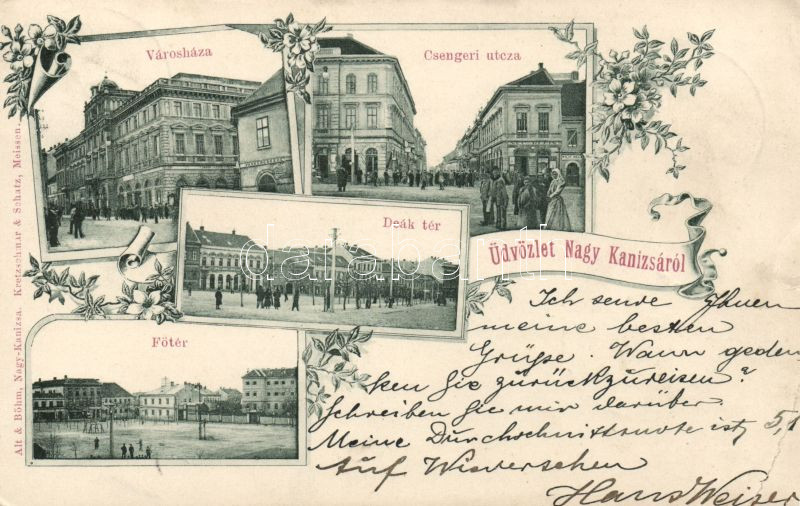 Városháza
Csengeri utcza
Deák tér
Üdvözlet Nagy Kanizsáról
Főtér
Alt & Böhm, Nagy-Kanizsa. Kretzschmar & Schatz, Meissen.
darabanth
Ich sende Ihnen
meine besten
Grüße. Wann geden
ken Sie zurückzureisen?
Schreiben Sie mir darüber
Meine Durchschnittsnote ist 5,1
Auf Wiedersehen
Hans Weiser